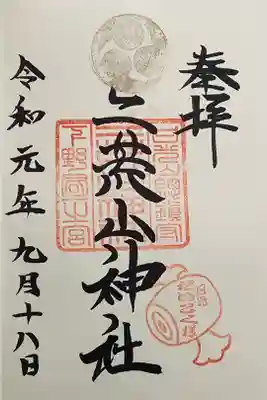 奉拝
二荒山神社
令和元年九月十八日
下野国一之宮